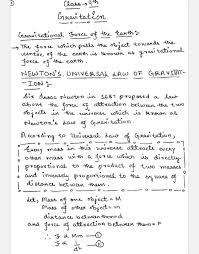 Class-9th
Gravitation
Gravitational Force of the Earth:
→ The force which pulls the object towards the
centre of the earth is known as gravitational
force of the earth.
NEWTON'S UNIVERSAL LAW OF GRAVITAT-
ION:
Sir Isaac Newton in 1687 proposed a law
about the force of attraction between the two
objects in the universe which is known as
Newton's Law of Gravitation.
According to Universal Law of Gravitation,
Every mass in this universe attracts every
other mass with a force which is directly
proportional to the product of two masses
and inversely proportional to the square of
distance between them.
Let, Mass of one object = M
Mass of other object = m
distance between them = d
and force of attraction between them = F
∴ F ∝ Mm — ①
F ∝ 1/d² — ②